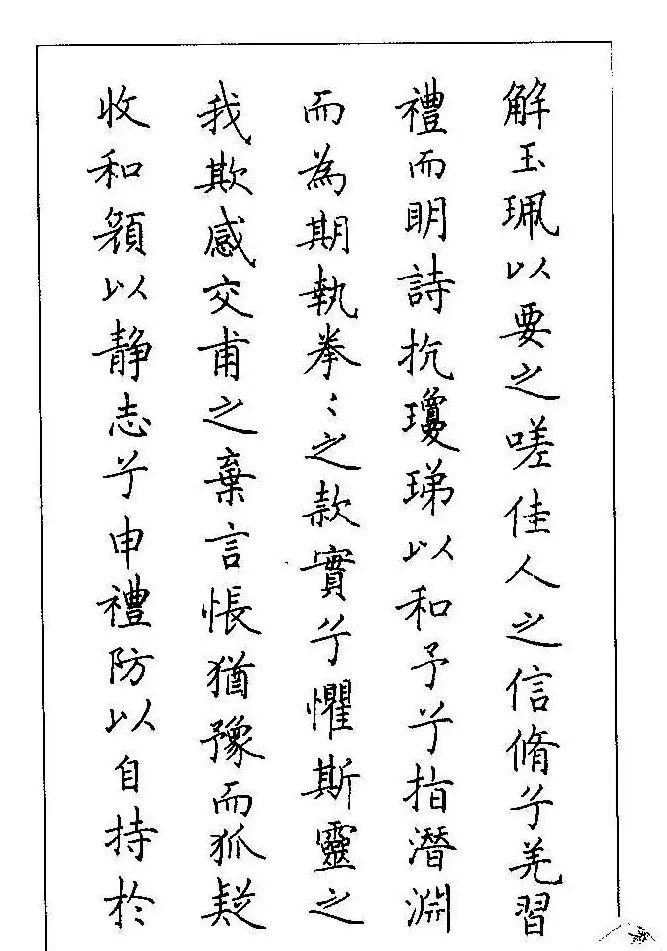 解玉珮以要之嗟佳人之信脩兮羌習
禮而明詩抗瓊珶以和予兮指潛淵
而為期執拳〻之款實兮懼斯靈之
我欺感交甫之棄言悵猶豫而狐疑
收和顏以静志兮申禮防以自持於